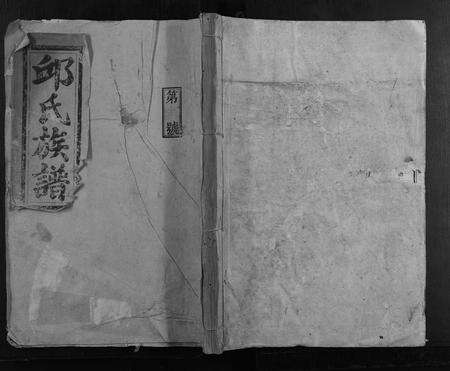 邱氏族譜
第 號